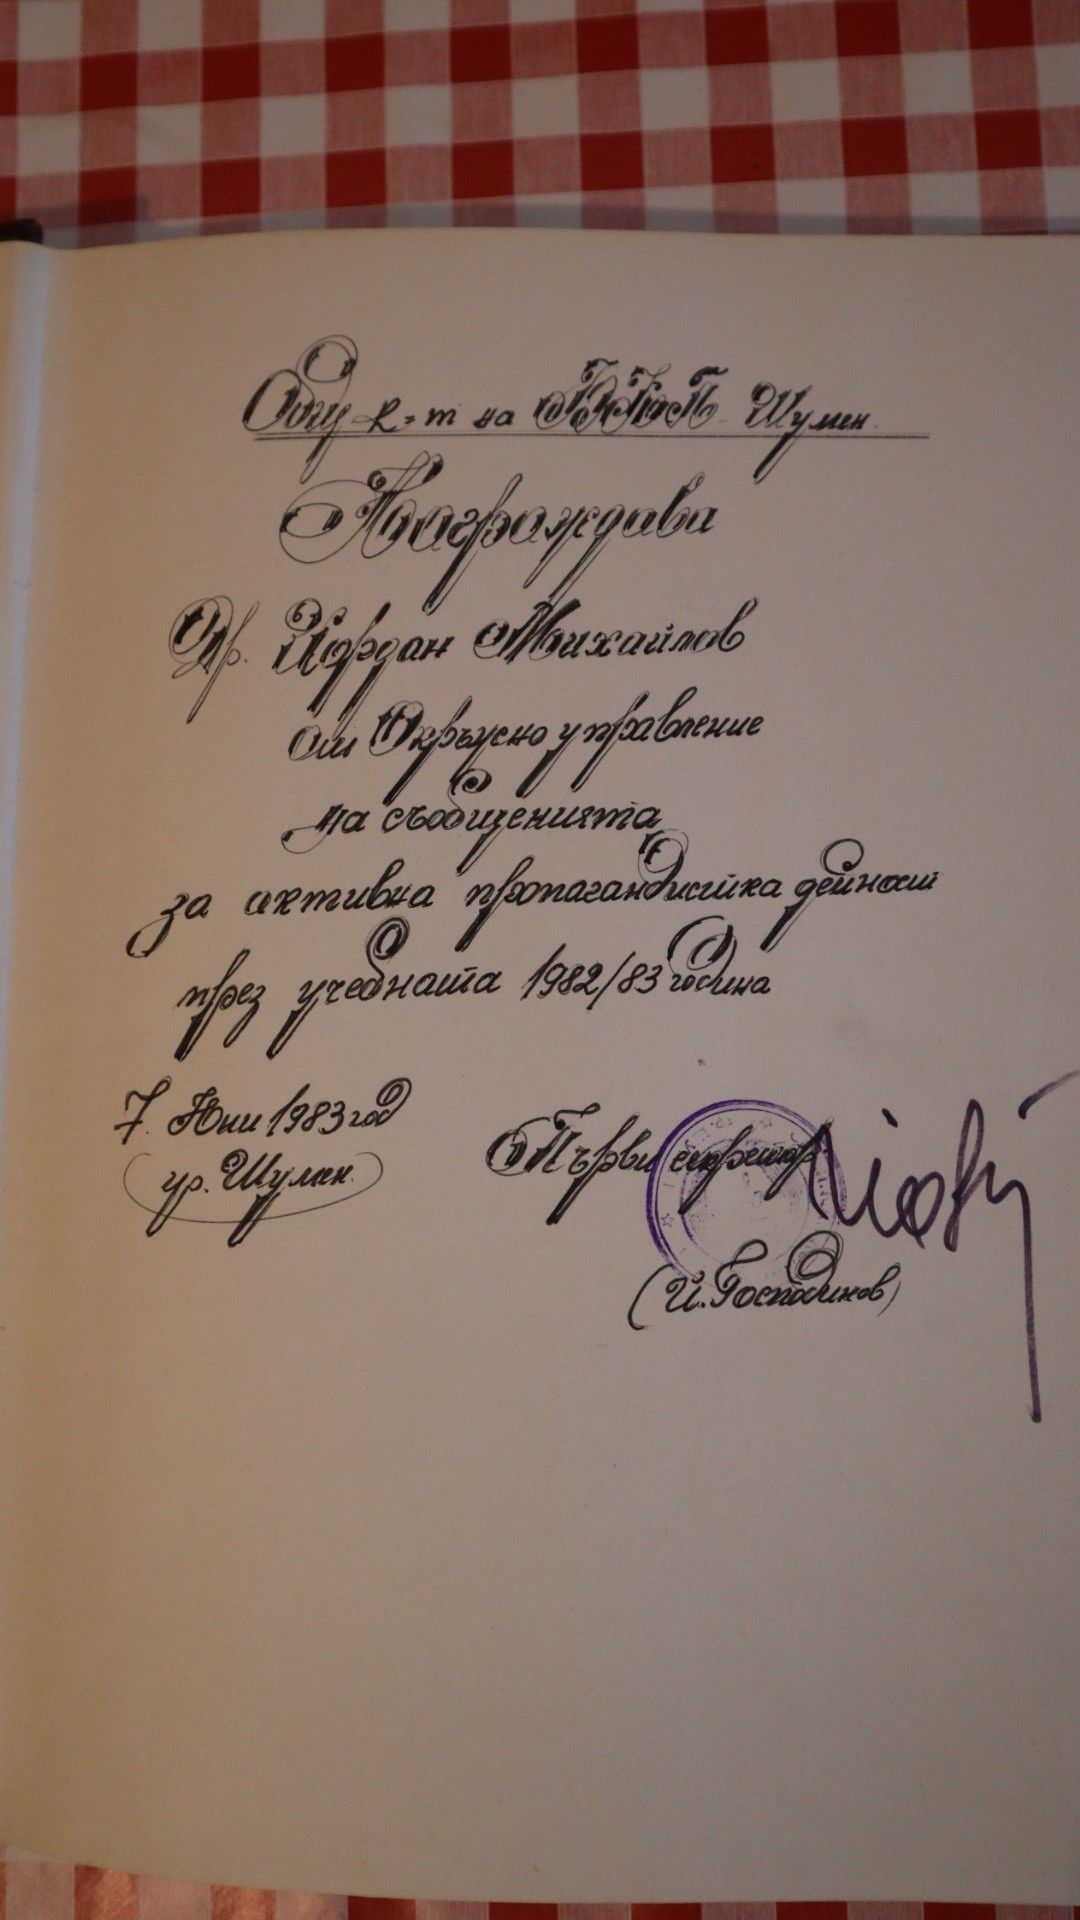 Общ. к-т на БКП Шумен.
Награждава
Др. Йордан Михайлов
от Окръжно управление
на съобщенията
за активна пропагандистка дейност
през учебната 1982/83 година
7. Юни 1983 год
гр. Шумен.
Първи секретар:
(Й. Господинов)